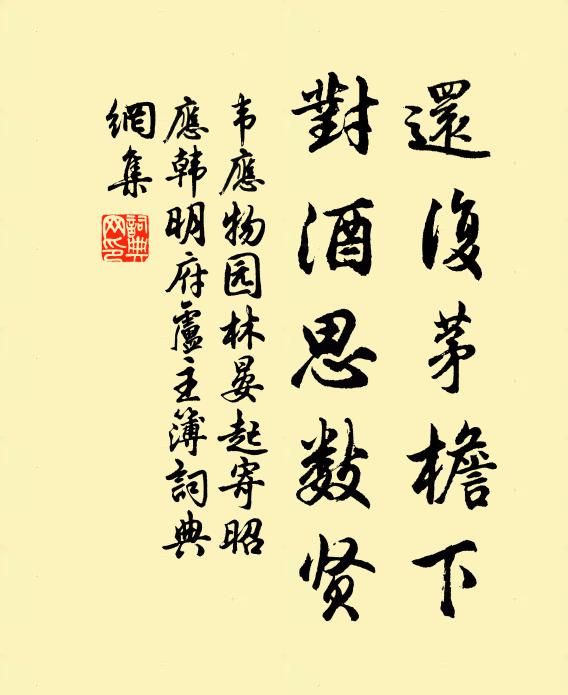 還復茅檐下
對酒思数贤
韦應物园林晏起寄昭
應韩明府盧主簿詞典
網集
詞典网印